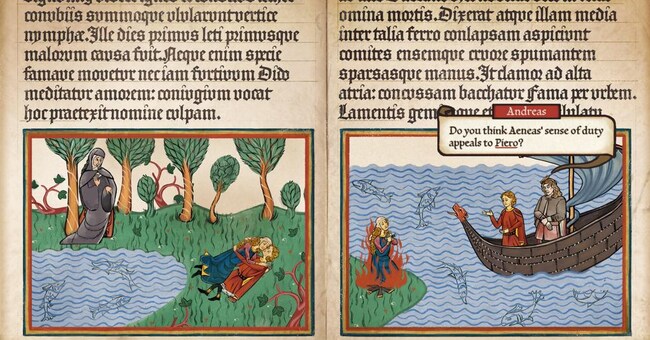 convbiis svmmoqve vlvlarvnt vertice
nymphæ. Ille dies primvs leti primvsque
malorvm cavsa fvit. Neqve enim specie
famave movetvr nec iam fvrtivvm Dido
meditatvr amorem: conivgivm vocat
hoc praetexit nomine cvlpam.
omina mortis. Dixerat atqve illam media
inter talia ferro conlapsam aspicivnt
comites ensemqve crvore spvmantem
sparsasqve manvs. It clamor ad alta
atria: concvssam bacchatvr Fama per vrbem.
Lamentis
Andreas
Do you think Aeneas' sense of duty
appeals to Piero?